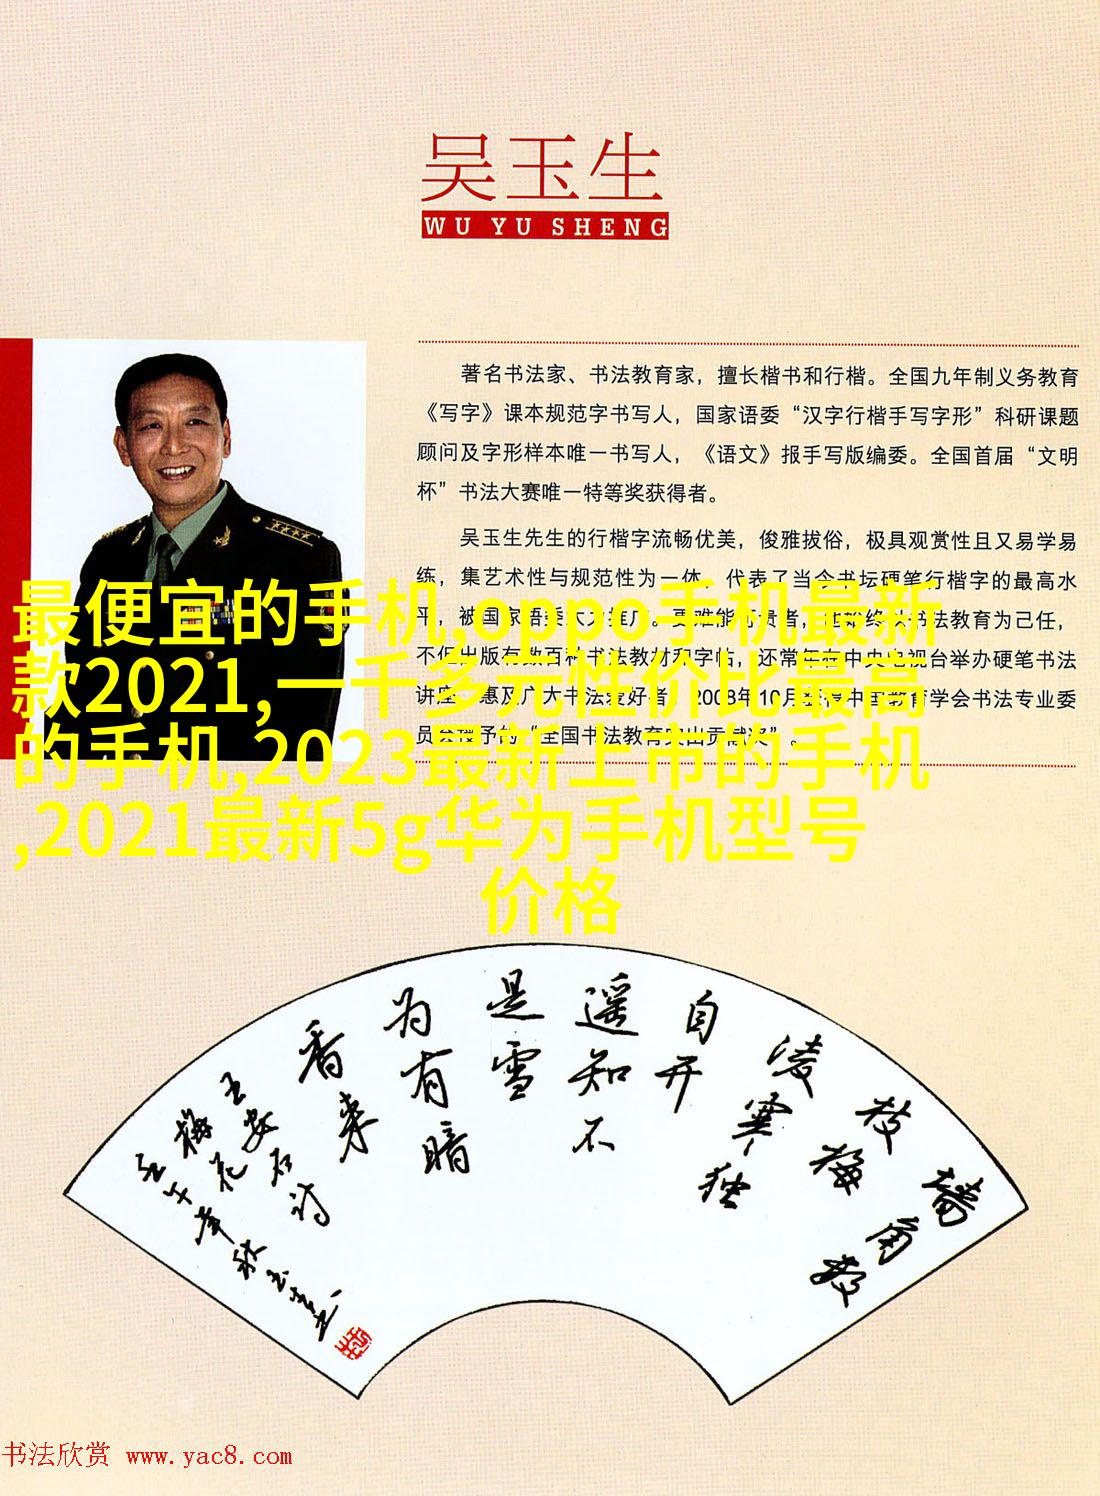 吴玉生
WU YU SHENG
著名书法家、书法教育家，擅长楷书和行楷。全国九年制义务教育
《写字》课本规范字书写人，国家语委“汉字行楷手写字形”科研课题
顾问及字形样本唯一书写人，《语文》报手写版编委。全国首届“文明
杯”书法大赛唯一特等奖获得者。
吴玉生先生的行楷字流畅优美，俊雅拔俗，极具观赏性且又易学易
练，集艺术性与规范性为一体，代表了当今书坛硬笔行楷字的最高水
平，被国家语委大力推广。更难能可贵者，他始终以书法教育为己任，
不但出版有数百种书法教材和字帖，还常年在中央电视台举办硬笔书法
讲座，惠及广大书法爱好者。2008年10月获得中国教育学会书法专业委
员会授予的“全国书法教育突出贡献奖”。
最便宜的手机,oppo手机最新
款2021,一千多元性价比最高
的手机,2023最新上市的手机
,2021最新5g华为手机型号
价格
墙角数
枝梅
凌寒独
自开
遥知不
是雪
为有暗
香来
王安石诗
梅花
壬午年秋玉生书
书法欣赏 www.yac8.com